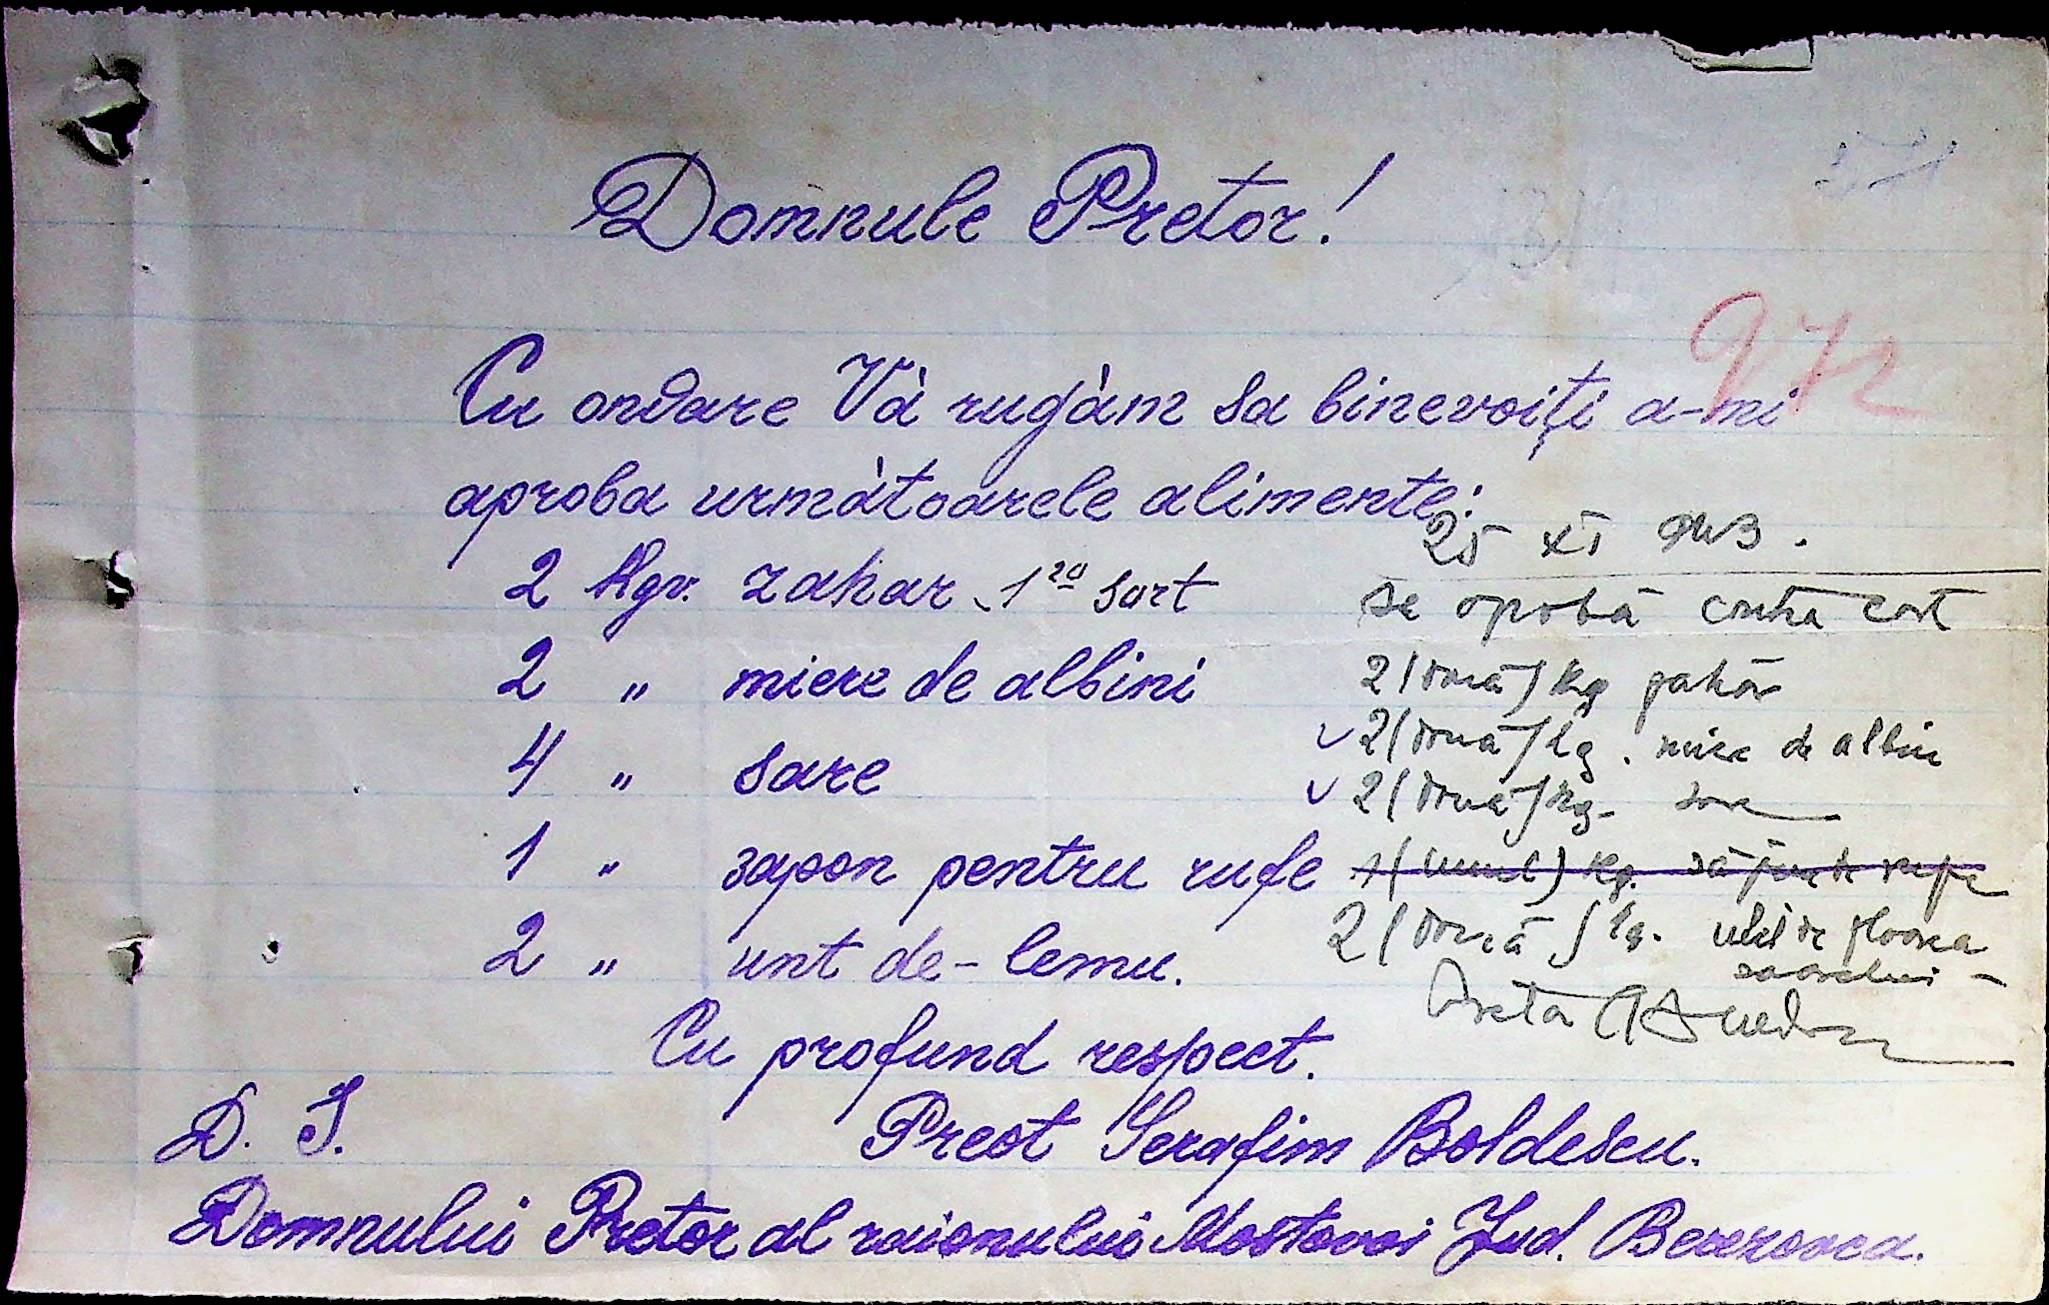 Domnule Pretor!
972
Cu onoare Và rugàm sa binevoiţi a-mi
aproba urmàtoarele alimente:
25 XI 943.
2 Kgr. zahar 1ᵃ sort
se aprobă contra cost
2 " miere de albini
2 (două) kg zahăr
2 (două) kg. miere de albine
4 " sare
2 (două) kg. sare
1 " sapon pentru rufe
1 (unul) kg. săpun de rufe
2 " unt de-lemu.
2 (două) kg. ulei de floarea
soarelui
Pretor
Cu profund respect.
D. S.
Preot Serafim Boldescu.
Domnului Pretor al raionului Mostovoi Jud. Berezovca.